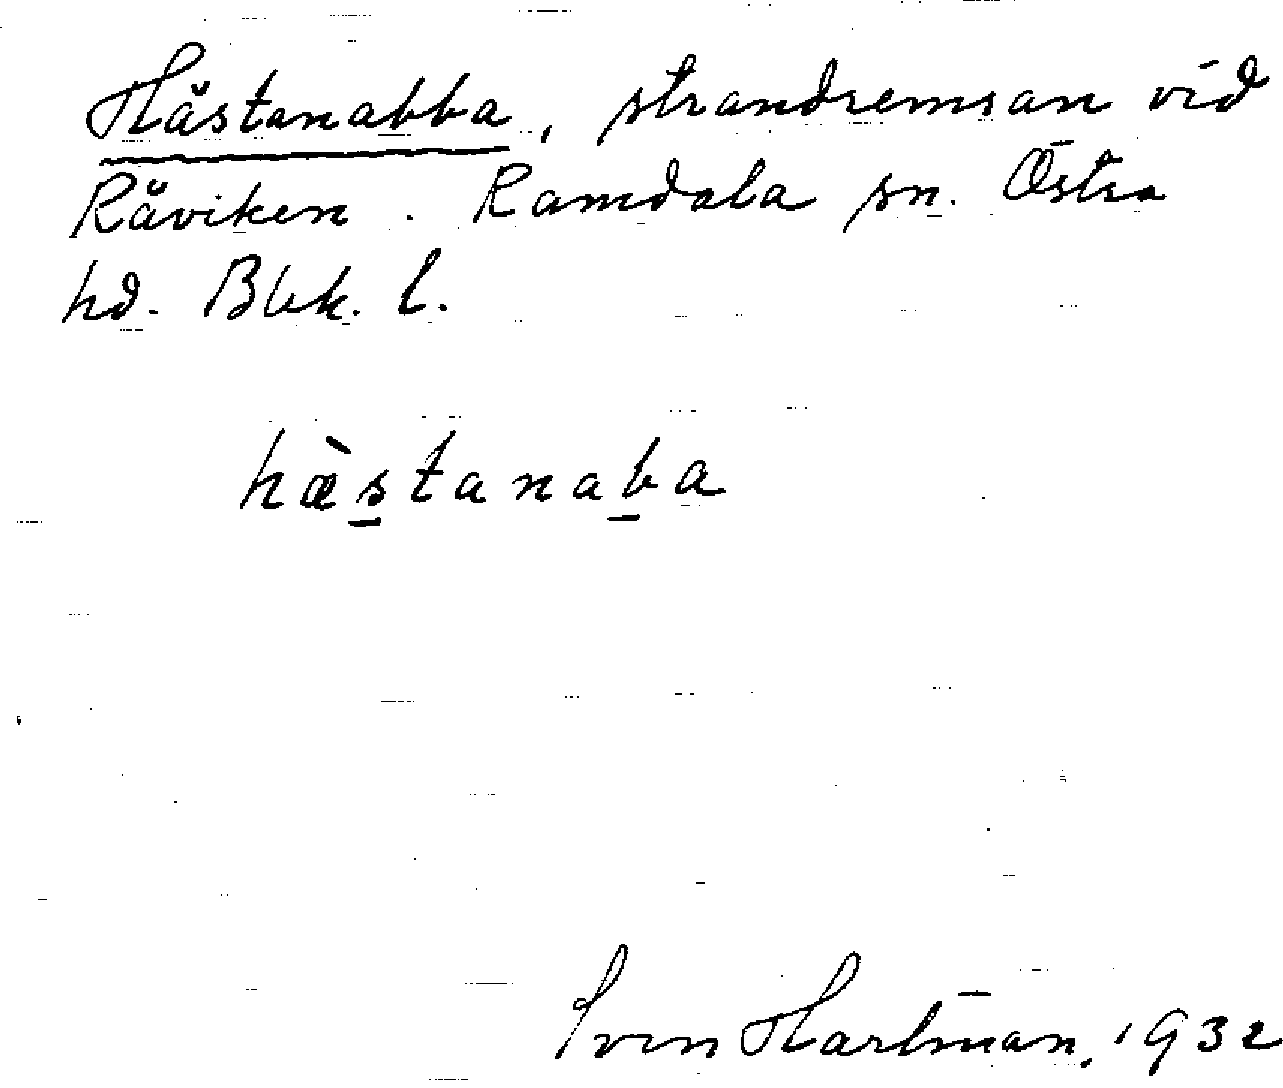 Hästanabba, strandremsan vid
Räviken. Ramdala sn. Östra
hd. Blek. l.
hæ̀s̲tanab̲a
Sven Hartman, 1932